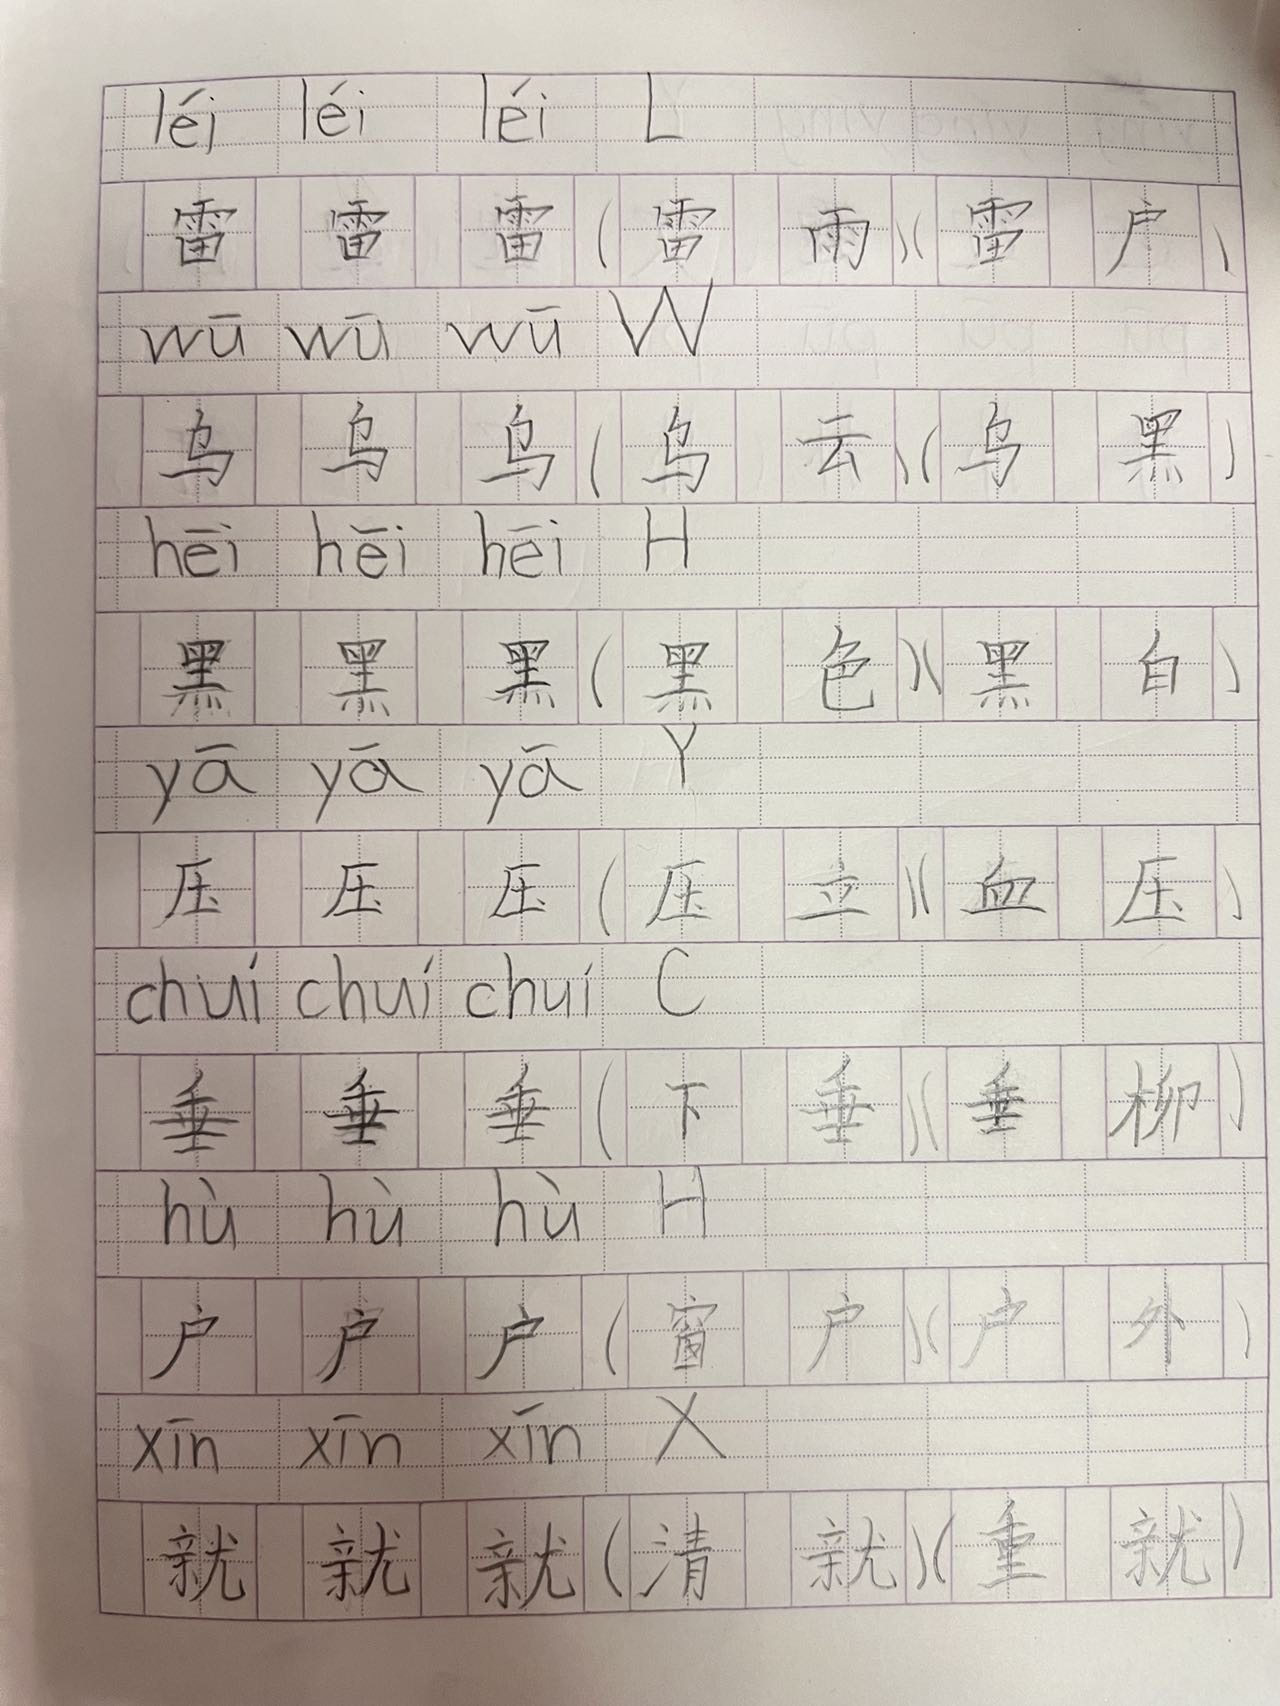 léi léi léi L
雷 雷 雷 (雷 雨)(雷 户)
wū wū wū W
乌 乌 乌 (乌 云)(乌 黑)
hēi hēi hēi H
黑 黑 黑 (黑 色)(黑 白)
yā yā yā Y
压 压 压 (压 立)(血 压)
chuí chuí chuí C
垂 垂 垂 (下 垂)(垂 柳)
hù hù hù H
户 户 户 (窗 户)(户 外)
xīn xīn xīn X
(清 )(重 )